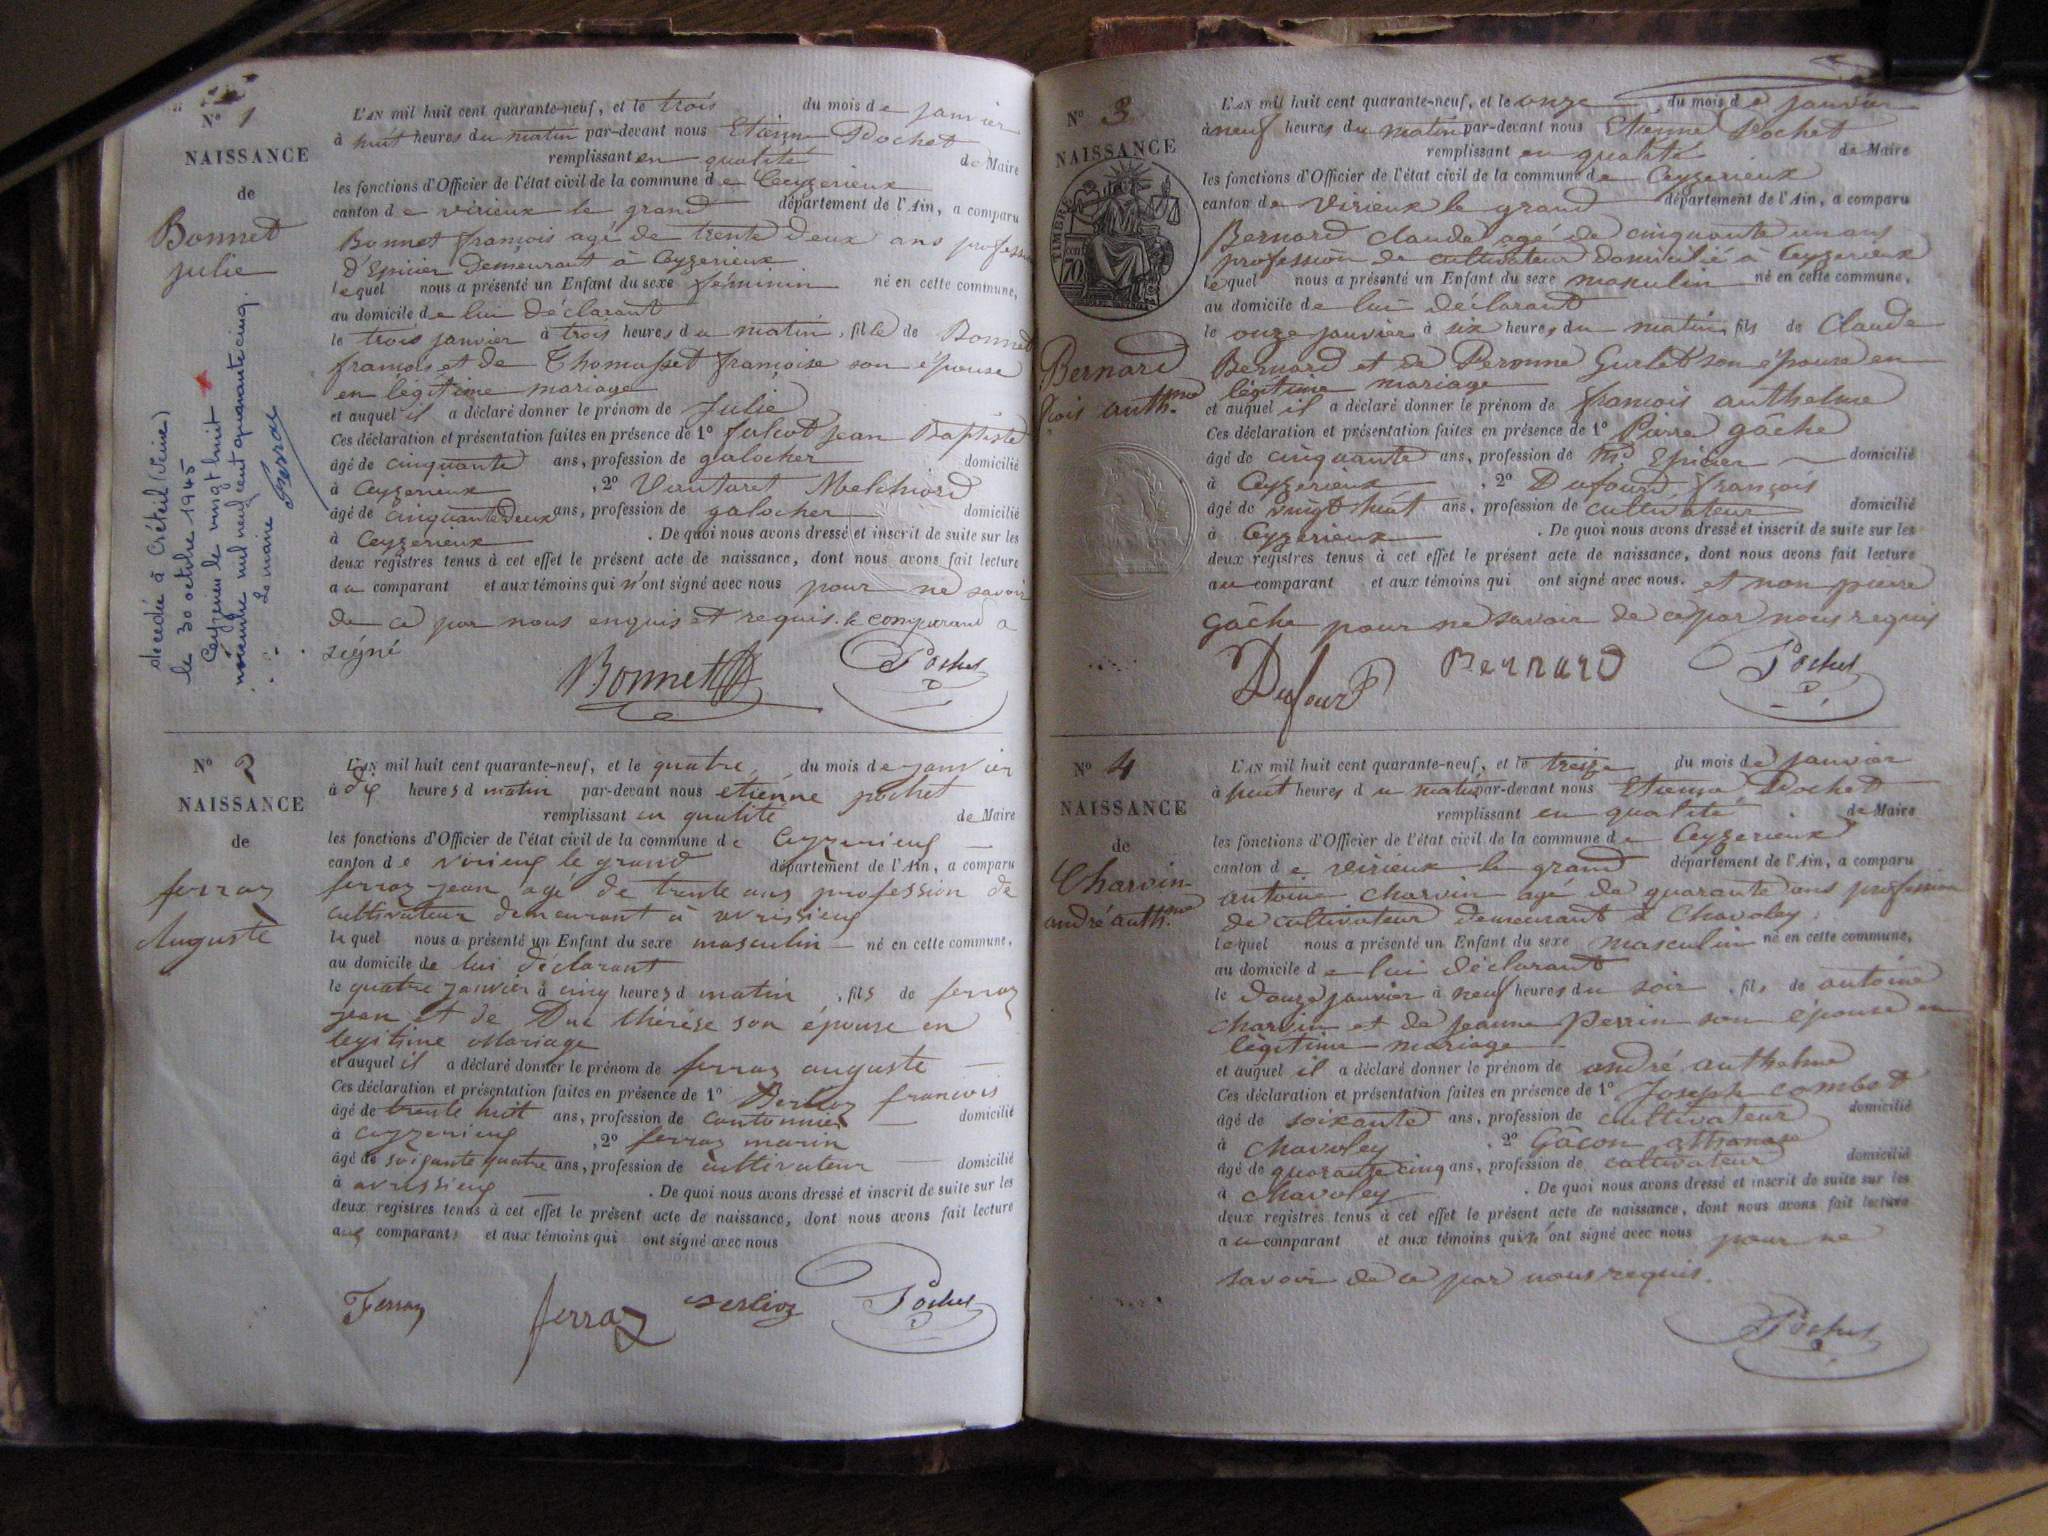 Nº 1
NAISSANCE
de
Bonnet
julie
décédée à Créteil (Seine)
le 30 octobre 1945
Ceyzerieu le vingt huit
novembre mil neuf cent quarante cinq.
Le maire
L'AN mil huit cent quarante-neuf, et le trois du mois de janvier
à huit heures du matin par-devant nous Etienne Pochet
remplissant en qualité de Maire
les fonctions d'Officier de l'état civil de la commune de Ceyzerieux
canton de virieux le grand département de l'Ain, a comparu
Bonnet francois agé de trente deux ans profession
d'Epicier Demeurant à Ceyzerieux
lequel nous a présenté un Enfant du sexe féminin né en cette commune,
au domicile de lui déclarant
le trois janvier à trois heures du matin, fille de Bonnet
francois et de Thomasset francoise son épouse
en légitime mariage
et auquel il a déclaré donner le prénom de Julie
Ces déclaration et présentation faites en présence de 1º Juliot Jean Baptiste
âgé de cinquante ans, profession de galocher domicilié
à Ceyzerieux, 2º Melchiord
âgé de cinquante deux ans, profession de galocher domicilié
à Ceyzerieux. De quoi nous avons dressé et inscrit de suite sur les
deux registres tenus à cet effet le présent acte de naissance, dont nous avons fait lecture
au comparant et aux témoins qui n'ont signé avec nous pour ne savoir
de ce par nous enquis et requis. le comparand a
signé
Bonnet Pochet
Nº 2
NAISSANCE
de
ferraz
Auguste
L'AN mil huit cent quarante-neuf, et le quatre du mois de janvier
à dix heures d matin par-devant nous etiénne pochet
remplissant en qualité de Maire
les fonctions d'Officier de l'état civil de la commune de Ceyzerieux
canton de virieux le grand département de l'Ain, a comparu
ferraz jean agé de trente ans profession de
cultivateur demeurant à avrissieux
lequel nous a présenté un Enfant du sexe masculin né en cette commune,
au domicile de lui déclarant
le quatre janvier à cinq heures d matin, fils de ferraz
jean et de Duc thérése son épouse en
legitime Mariage
et auquel il a déclaré donner le prénom de ferraz auguste
Ces déclaration et présentation faites en présence de 1º Berlioz francois
âgé de trente huit ans, profession de cantonnier domicilié
à ceyzerieux, 2º ferraz marin
âgé de soixante quatre ans, profession de cultivateur domicilié
à avrissieux. De quoi nous avons dressé et inscrit de suite sur les
deux registres tenus à cet effet le présent acte de naissance, dont nous avons fait lecture
aux comparants et aux témoins qui ont signé avec nous
Ferraz ferraz Berlioz Pochet
Nº 3
NAISSANCE
TIMBRE
70
Bernard
fcois anth.me
L'AN mil huit cent quarante-neuf, et le onze du mois de janvier
à neuf heures du matin par-devant nous Etienne Pochet
remplissant en qualité de Maire
les fonctions d'Officier de l'état civil de la commune de Ceyzerieux
canton de virieux le grand département de l'Ain, a comparu
Bernard claude agé de cinquante un ans
profession de cultivateur domicilié a Ceyzerieux
lequel nous a présenté un Enfant du sexe masculin né en cette commune,
au domicile de lui déclarant
le onze janvier à six heures du matin, fils de Claude
Bernard et de Peronne Gurlet son épouse en
légitime mariage
et auquel il a déclaré donner le prénom de francois anthelme
Ces déclaration et présentation faites en présence de 1º Pierre gâche
âgé de cinquante ans, profession de Md Epicier domicilié
à Ceyzerieux, 2º Dufourd françois
âgé de vingt huit ans, profession de cultivateur domicilié
à Ceyzerieux. De quoi nous avons dressé et inscrit de suite sur les
deux registres tenus à cet effet le présent acte de naissance, dont nous avons fait lecture
au comparant et aux témoins qui ont signé avec nous. et non pierre
gâche pour ne savoir de ce par nous requis
Dufourd Bernard Pochet
Nº 4
NAISSANCE
de
Charvin
andré anth.me
L'AN mil huit cent quarante-neuf, et le treize du mois de janvier
à huit heures du matin par-devant nous Etienne Pochet
remplissant en qualité de Maire
les fonctions d'Officier de l'état civil de la commune de Ceyzerieux
canton de virieux le grand département de l'Ain, a comparu
antoine charvin agé de quarante ans profession
de cultivateur demeurant à Chavoley
lequel nous a présenté un Enfant du sexe masculin né en cette commune,
au domicile de lui déclarant
le douze janvier à neuf heures du soir, fils de antoine
charvin et de jeanne Perrin son épouse en
légitime mariage
et auquel il a déclaré donner le prénom de andré anthelme
Ces déclaration et présentation faites en présence de 1º Joseph combet
âgé de soixante ans, profession de cultivateur domicilié
à chavoley, 2º Gâcon athanase
âgé de quarante cinq ans, profession de cultivateur domicilié
à chavoley. De quoi nous avons dressé et inscrit de suite sur les
deux registres tenus à cet effet le présent acte de naissance, dont nous avons fait lecture
au comparant et aux témoins qui n'ont signé avec nous pour ne
savoir de ce par nous requis.
Pochet